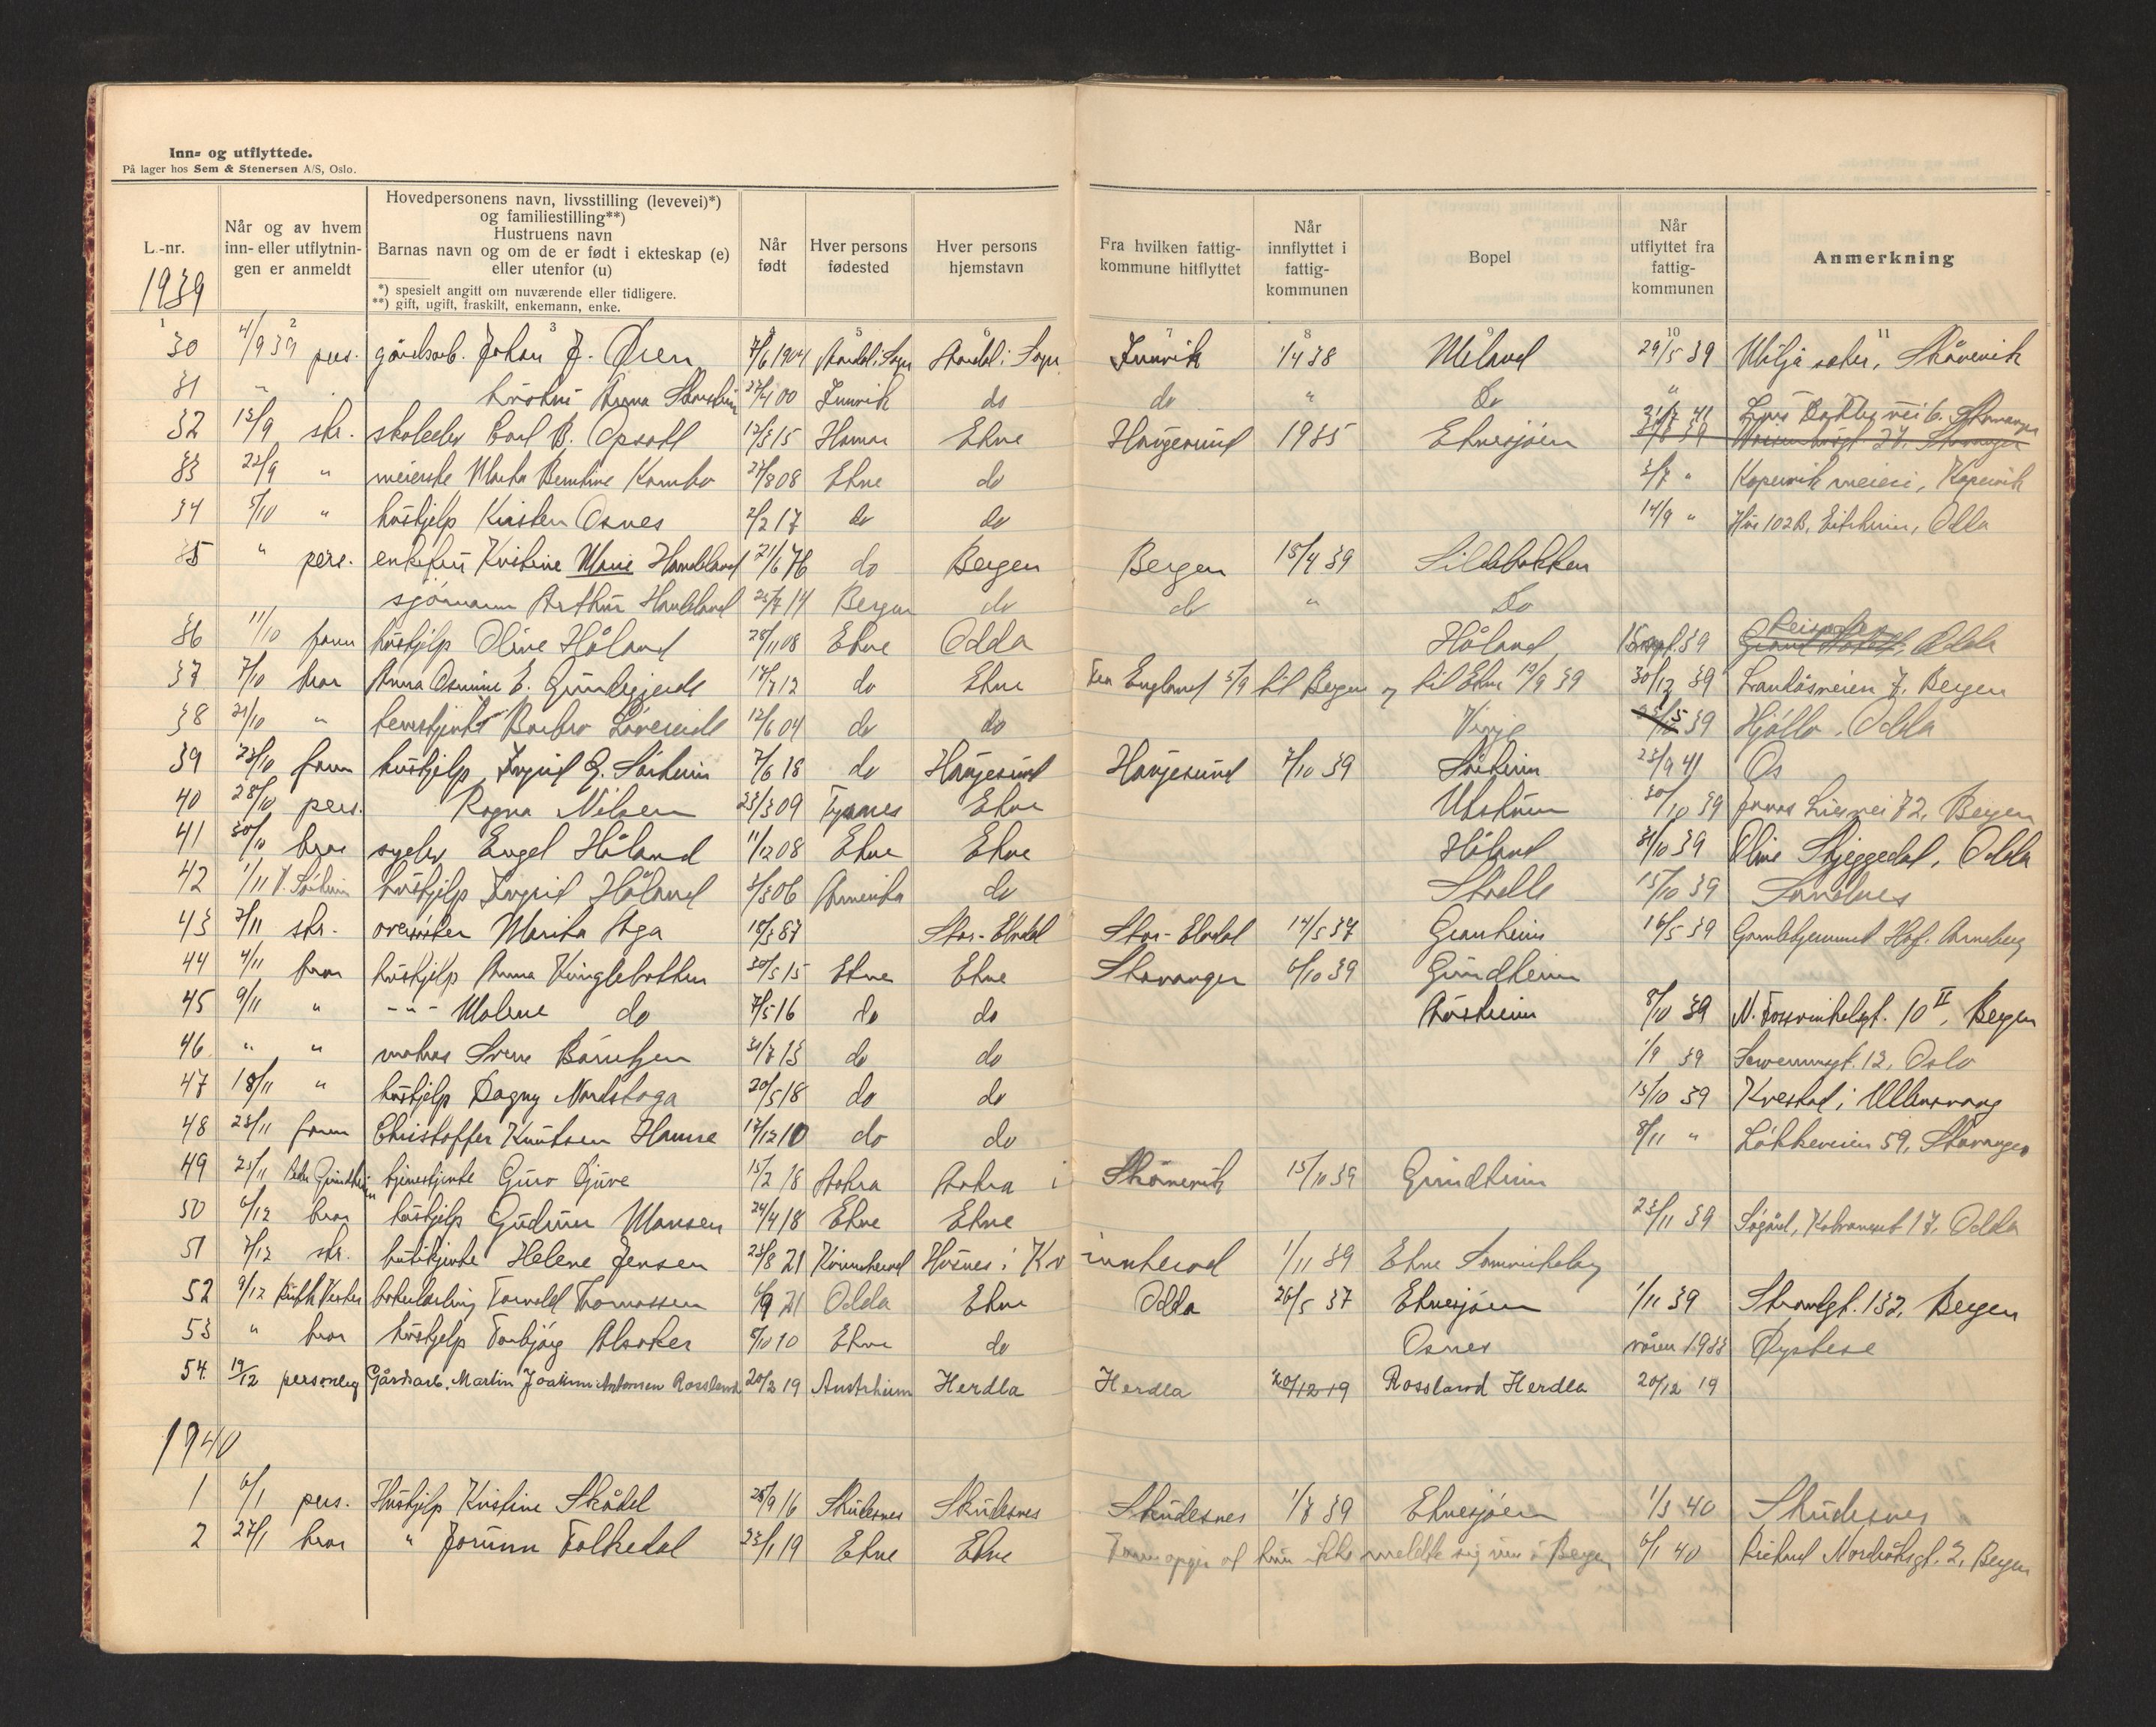 Inn- og utflyttede.
På lager hos Sem & Stenersen A/S, Oslo.
L.-nr.
1939
Når og av hvem inn- eller utflytnin-gen er anmeldt
Hovedpersonens navn, livsstilling (levevei)*) og familiestilling**)
Hustruens navn
Barnas navn og om de er født i ekteskap (e) eller utenfor (u)
*) spesielt angitt om nuværende eller tidligere.
**) gift, ugift, fraskilt, enkemann, enke.
Når født
Hver persons fødested
Hver persons hjemstavn
Fra hvilken fattig-kommune hitflyttet
Når innflyttet i fattig-kommunen
Bopel
Når utflyttet fra fattig-kommunen
Anmerkning
1 2 3 5 6 7 8 9 10 11
30 4/9 39 pers. gårdsarb. Johan J. Øren 7/6 1904 Innvik 1/4 38 Meland 29/5 39 Skånevik
31 " Anna 00 Innvik do do " Do "
32 13/9 skr. skoleelev Carl B. Opsahl 12/3 15 Hamar Etne Haugesund 1935 Etnesjøen 31/7 41 Stavanger
33 22/9 " meierske Marta Berntine Kambo 27/8 08 Etne do 3/7 " Kopervik meieri, Kopervik
34 5/10 " hushjelp Kirsten Osnes 2/2 17 do do 14/9 " Hus 102 B, Eitrheim, Odda
35 " pers. enkefru Kristine Marie Handeland 21/6 76 do Bergen Bergen 15/4 39 Sildabakken
sjømann Arthur Handeland 25/7 14 Bergen do do " Do
36 11/10 faren hushjelp Oline Håland 28/11 08 Etne Odda Håland 15 sept. 39 Odda
37 7/10 bror Anna Osmine E. Grindegjerde 17/7 12 do Etne Fra England 5/9 til Bergen og til Etne 19/9 39 30/12 39 Landåsveien 7, Bergen
38 21/10 " Barbro Løvereide 12/6 04 do do 39 Hjøllo, Odda
39 23/10 faren hushjelp Ingrid G. Sørheim 7/6 18 do Haugesund Haugesund 7/10 39 Sørheim 23/9 41 Os
40 28/10 pers. Ragna Nilsen 23/3 09 Tysnes Etne 30/10 39 Jonas Liesvei 72, Bergen
41 30/10 bror syelev Engel Håland 11/12 08 Etne Etne Håland 31/10 39 Oline Skjeggedal, Odda
42 1/11 V. Sørheim hushjelp Ingrid Håland 3/3 06 Amerika do 15/10 39 Sandnes
43 2/11 skr. Marita Aga 18/3 87 Stor-Elvdal Stor-Elvdal 14/5 37 Granheim 16/5 39 Gamlehjemmet Hof. Arneberg
44 4/11 bror hushjelp Anna Kringlebotten 30/5 15 Etne Etne Stavanger 6/10 39 Grindheim
45 9/11 " -"- Malene do 7/5 16 do do 8/10 39 N. Fosswinkelsgt. 10 II, Bergen
46 " " matros Svenn Børretzen 31/7 13 do do 1/9 39 12, Oslo
47 18/11 " hushjelp Dagny Nordstoga 20/5 18 do do 15/10 39 Krestad i Ullensvang
48 23/11 faren Christoffer Knutsen Hamre 17/12 10 do do 8/11 " Løkkeveien 59, Stavanger
49 25/11 Peder Grindheim tjenestjente Guro Djuve 15/2 18 Stokra Stokra i Skånevik 15/10 39 Grindheim
50 6/12 bror hushjelp Gudrun Monsen 24/4 18 Etne Etne 23/11 39 17, Odda
51 7/12 skr. butikjente Helene Jensen 23/8 21 Kvinnherad Husnes i Kvinnherad 1/11 39 Etne
52 9/12 Torvald Thomassen 6/9 21 Odda Etne Odda 26/5 37 Etnesjøen 1/11 39 Strandgt. 132, Bergen
53 " bror hushjelp Torbjørg Alsaker 8/10 10 Etne do Osnes våren 1933 Øystese
54. 19/12 personlig Gårdsarb. Martin Joakim Antonsen Rossland 20/2 19 Austrheim Herdla Herdla 20/12 19 Rossland Herdla 20/12 19
1940
1 6/1 pers. Hushjelp Kristine Skådel 25/9 16 Skudesnes Skudesnes Skudesnes 1/8 39 Etnesjøen 1/3 40 Skudesnes
2 27/1 bror " Jorunn Folkedal 23/1 19 Etne Etne oppgir at hun ikke meldte sig inn i Bergen 6/1 40 Rikard Nordråksgt. 2, Bergen